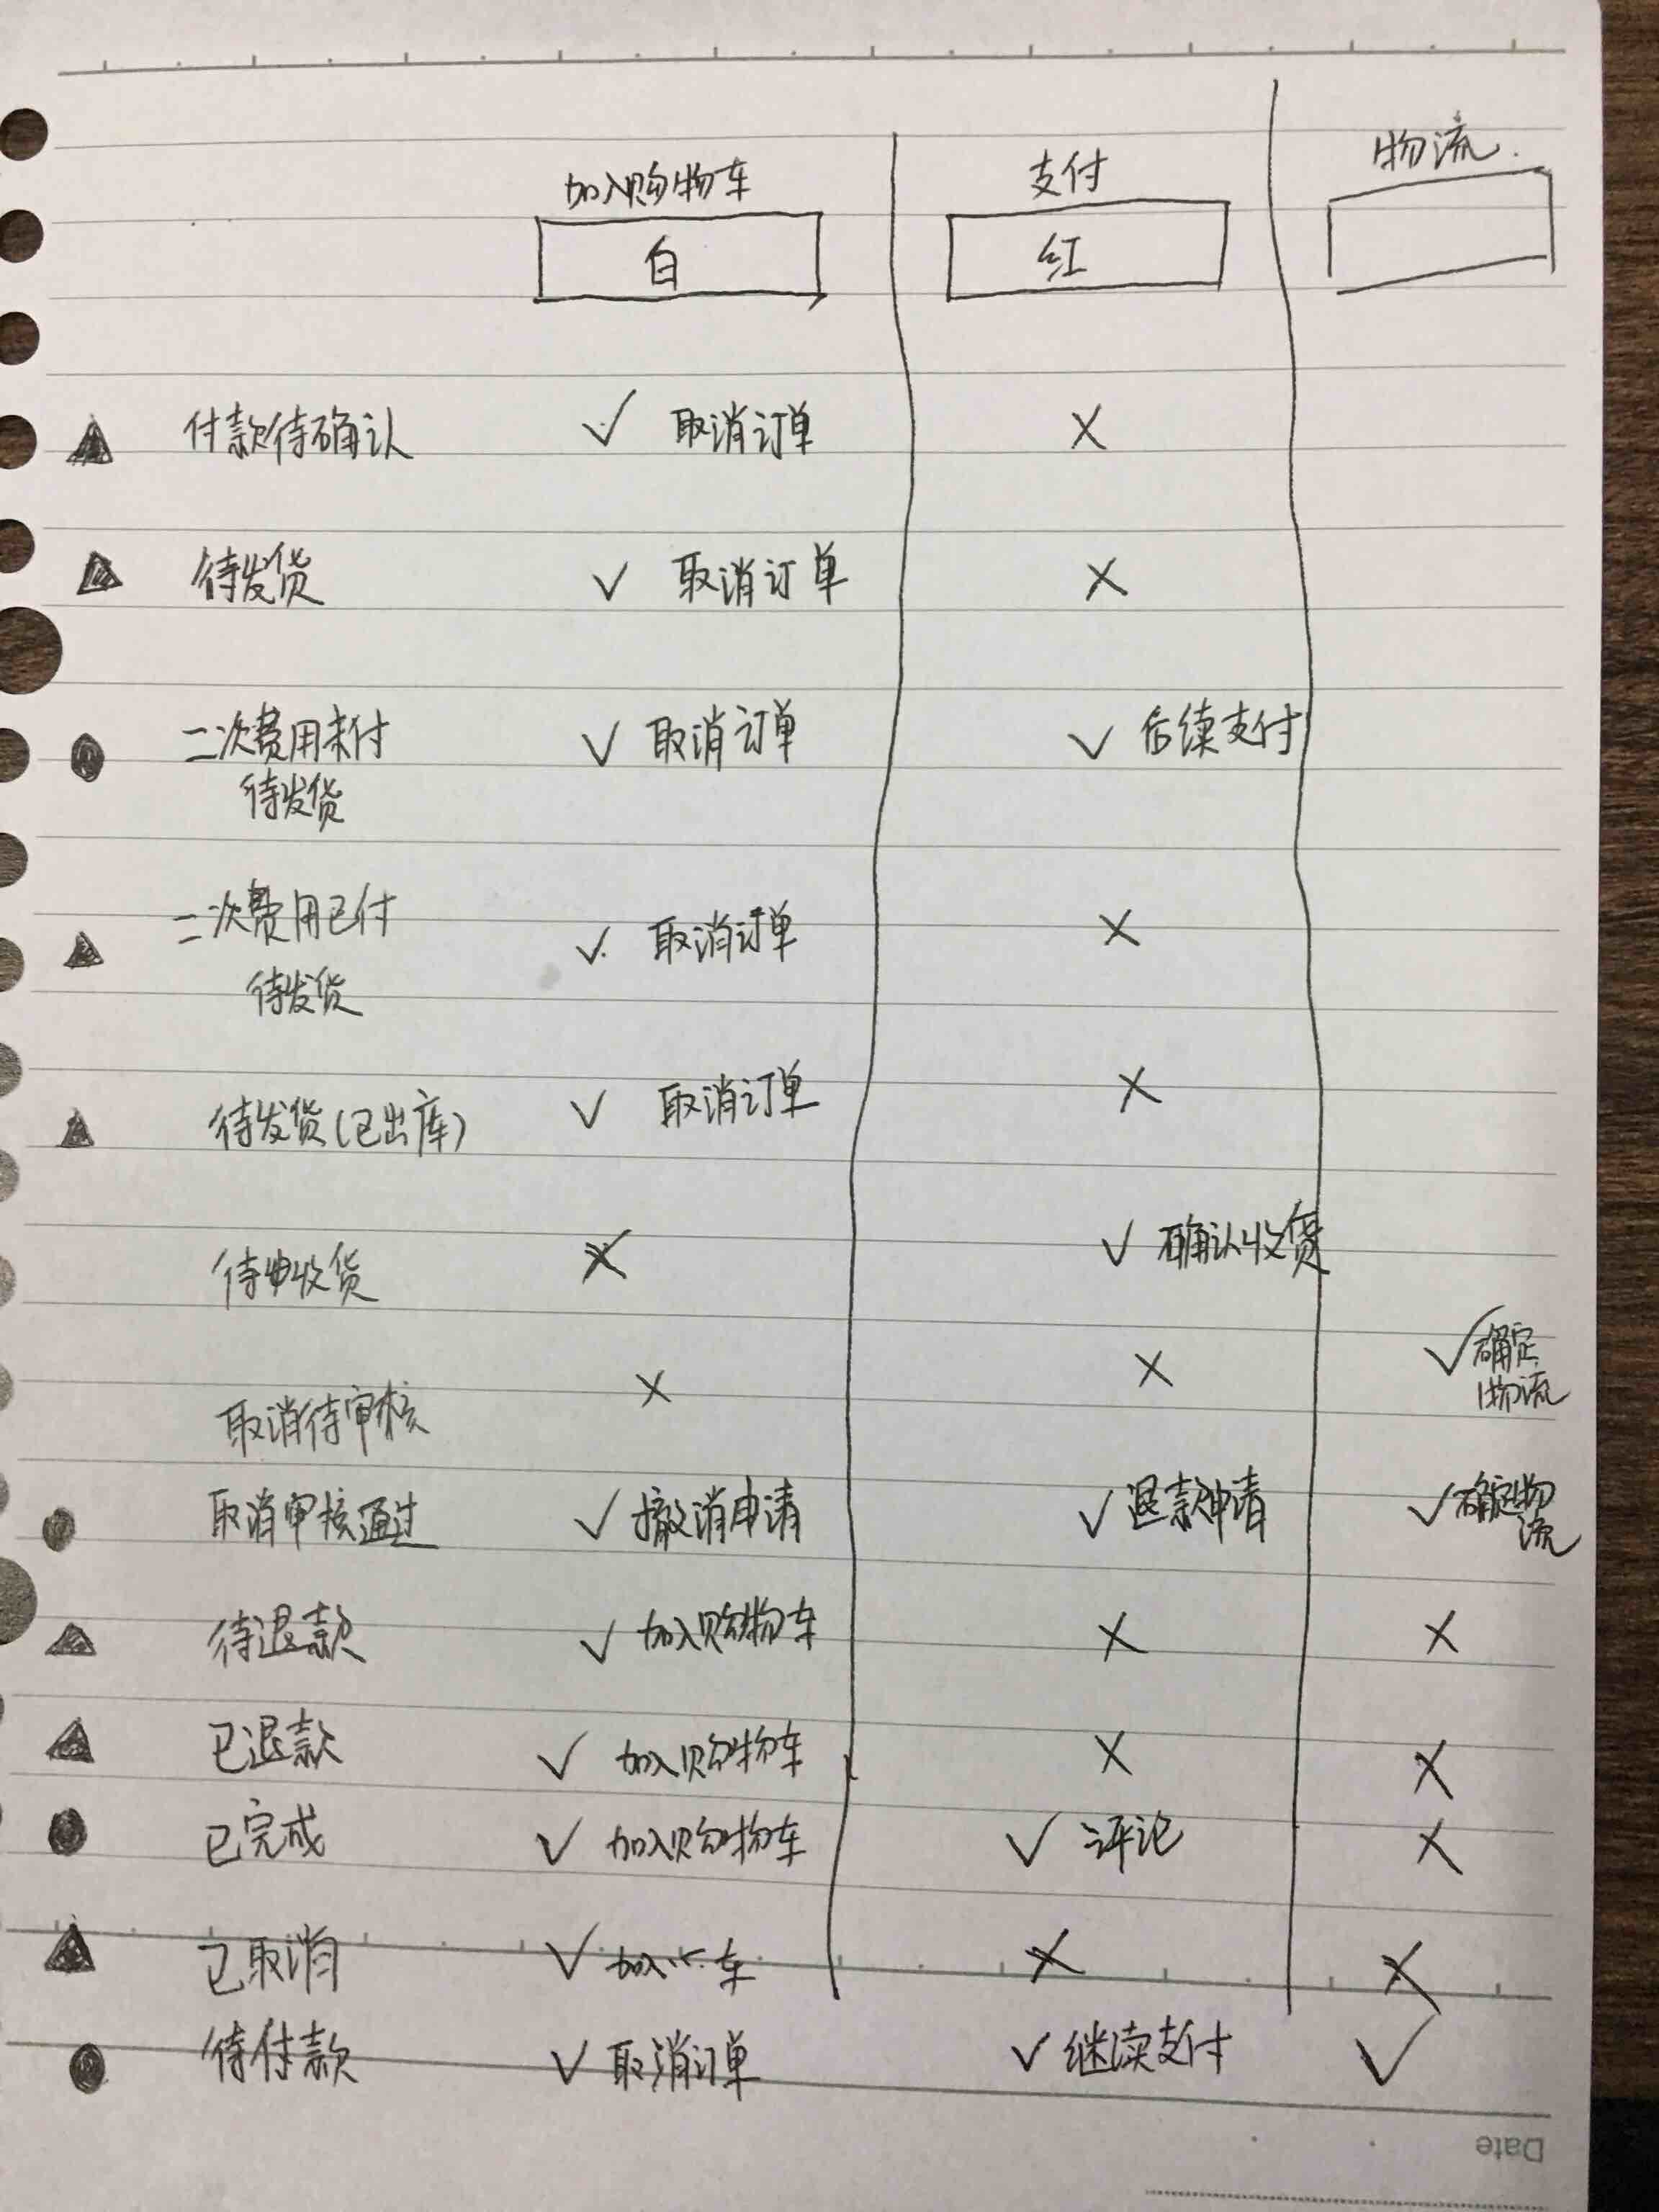 加入购物车 支付 物流
白 红
付款待确认 ✓ 取消订单 ×
待发货 ✓ 取消订单 ×
二次费用未付 ✓ 取消订单 ✓ 后续支付
待发货
二次费用已付 ✓ 取消订单 ×
待发货
待发货(已出库) ✓ 取消订单 ×
待收货 × ✓ 确认收货
取消待审核 × × ✓ 确定
物流
取消审核通过 ✓ 撤消申请 ✓ 退款申请 ✓ 确定物
流
待退款 ✓ 加入购物车 × ×
已退款 ✓ 加入购物车 × ×
已完成 ✓ 加入购物车 ✓ 评论 ×
已取消 ✓ 加入...车 × ×
待付款 ✓ 取消订单 ✓ 继续支付 ✓
Date